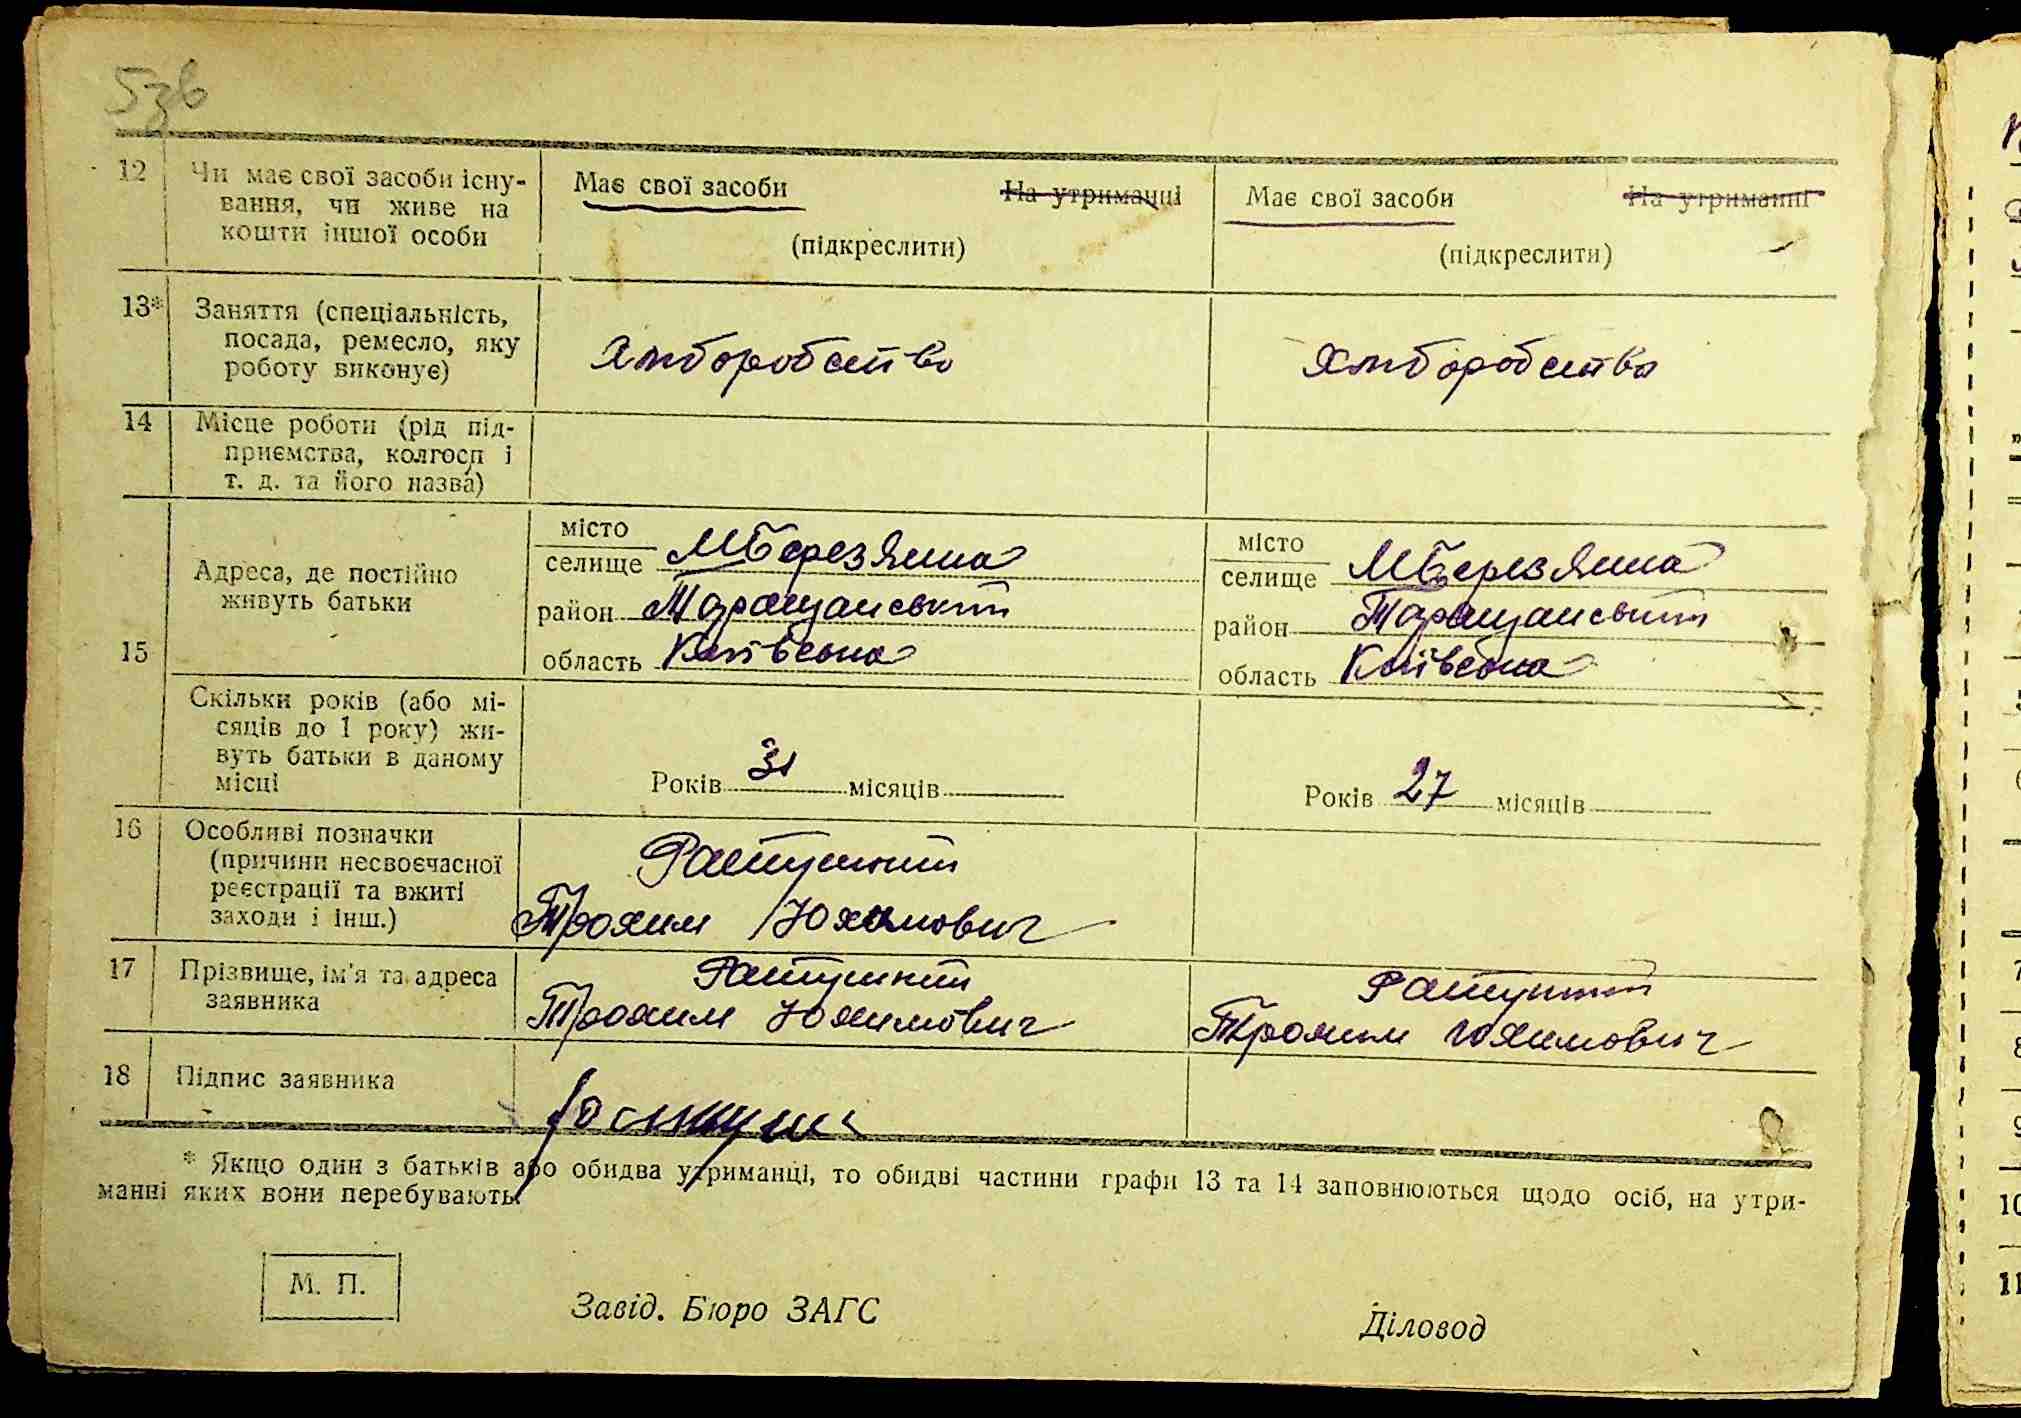 53в
12 Чи має свої засоби існу- Має свої засоби На утриманні Має свої засоби На утриманні
вання, чи живе на
кошти іншої особи (підкреслити) (підкреслити)
13* Заняття (спеціальність,
посада, ремесло, яку Хліборобство Хліборобство
роботу виконує)
14 Місце роботи (рід під-
приємства, колгосп і
т. д. та його назва)
15 Адреса, де постійно
живуть батьки
місто
селище МБерезянка
район Таращанський
область Київська
місто
селище МБерезянка
район Таращанський
область Київська
Скільки років (або мі-
сяців до 1 року) жи-
вуть батьки в даному
місці
Років 31 місяців Років 27 місяців
16 Особливі позначки
(причини несвоєчасної
реєстрації та вжиті
заходи і інш.)
Трохим Юхимович
17 Прізвище, ім'я та адреса
заявника
Трохим Юхимович Трохим Юхимович
18 Підпис заявника
* Якщо один з батьків або обидва утриманці, то обидві частини графи 13 та 14 заповнюються щодо осіб, на утри-
манні яких вони перебувають.
М. П.
Завід. Бюро ЗАГС
Діловод
7
8
9
10
11